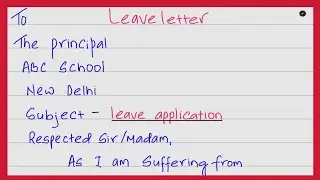 To
Leave letter
The principal
ABC School
New Delhi
Subject - leave application
Respected Sir/Madam,
As I am Suffering from